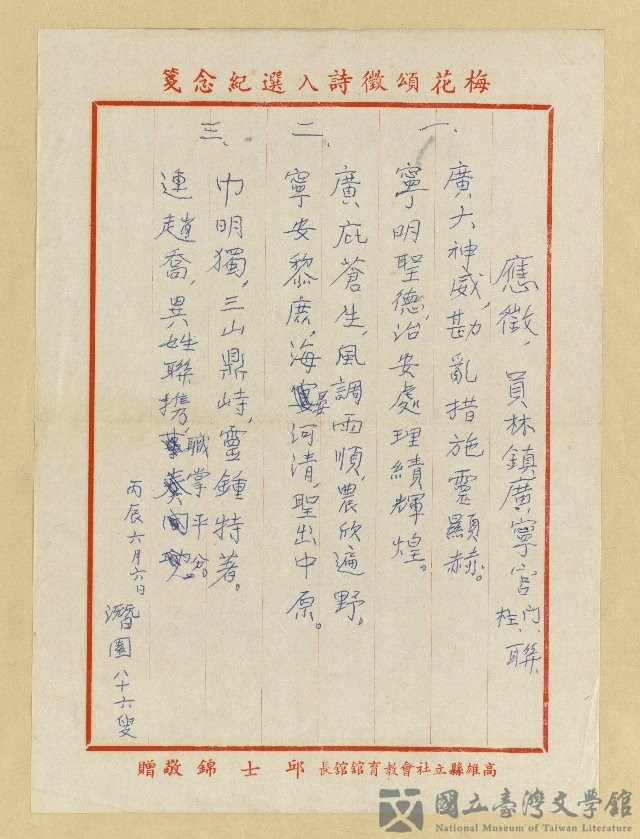 梅花頌徵詩入選紀念箋
應徵，員林鎮廣寧宮門、柱、聯
一、
廣大神威，勘亂措施靈顯赫。
寧明聖德，治安處理績輝煌。
二、
廣庇蒼生，風調雨順，農欣遍野。
寧安黎庶，海晏河清，聖出中原。
三、
巾明獨，三山鼎峙，靈鍾特著。
連趙喬，異姓聯携，職掌平分。
丙辰六月六日
潛園八十六叟
高雄縣立社會教育館館長邱士錦敬贈
國立臺灣文學館
National Museum of Taiwan Literature